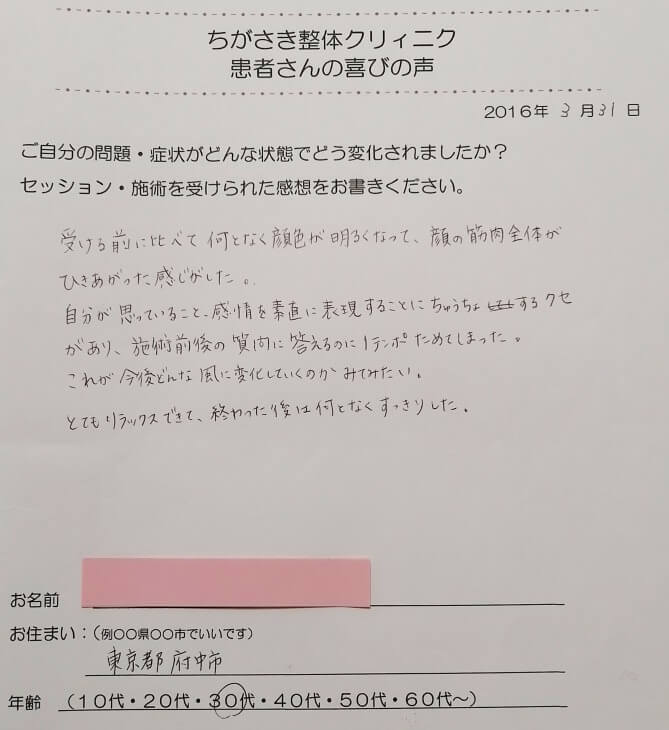 ちがさき整体クリィニク
患者さんの喜びの声
2016年 3月31日
ご自分の問題・症状がどんな状態でどう変化されましたか？
セッション・施術を受けられた感想をお書きください。
受ける前に比べて何となく顔色が明るくなって、顔の筋肉全体が
ひきあがった感じがした。
自分が思っていること、感情を素直に表現することにちゅうちょするクセ
があり、施術前後の質問に答えるのに1テンポためてしまった。
これが今後どんな風に変化していくのかみてみたい。
とてもリラックスできて、終わった後は何となくすっきりした。
お名前
お住まい：（例〇〇県〇〇市でいいです）
東京都府中市
年齢 （10代・20代・30代・40代・50代・60代～）